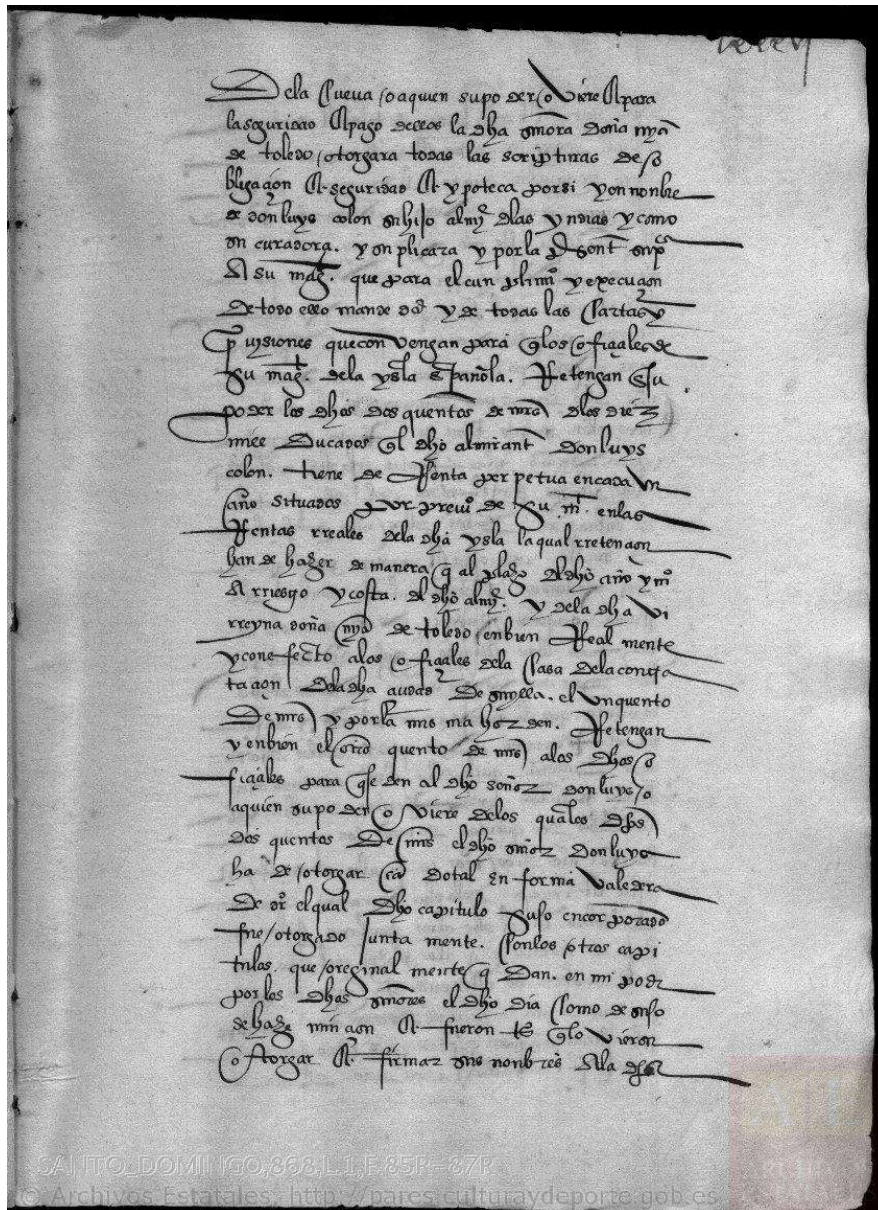 lxxxvj
De la Cueva / o a quien su poder oviere E para
la seguridad E pago dellos la dha señora doña mya
de toledo / otorgara todas las scripturas de o
bligaçion E seguridad E ypoteca por si y en nonbre
de don luys colon su hijo almyte delas yndias y como
su curadora. y suplicara y por la presente supca
A su magt. que para el cunplimio y execuçion
de todo ello mande dar y de todas las Cartas y
provisiones que convengan para q los oficiales de
Su magt. dela ysla española. Retengan en su
poder los dhos dos quentos de mrs delos diez
mill Ducados ql dho almirante don luys
colon. tiene de Renta perpetua en cada Un
año situados por previo de Su mt. en las
Rentas rreales dela dha ysla la qual rretençion
han de hazer de manera q al plazo del dho año y mo
A rriesgo y costa. del dho almyte. y dela dha vi
rreyna doña mya de toledo / enbien Realmente
y con efecto alos oficiales dela Casa dela contra
taçion dela dha çiudad De sevylla. el Un quento
De mrs y por la misma horden. Retengan
y enbien el otro quento de mrs alos dhos o
ficiales para q se den al dho señor don luys / o
a quien su poder oviere delos quales dhos
dos quentos De mrs el dho señor Don luys
ha de / otorgar carta dotal en forma Valedera
De dro el qual Dho capitulo suso encorporado
fue / otorgado Junta mente. Con los / otros capi
tulos. que / oreginalmente q Dan. en mi poder
por los dhos señores el dho dia Como de suso
se haze minçion E fueron to q lo vieron
otorgar E firmar sus nonbres Ala